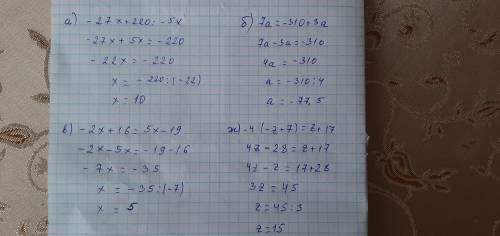 а) -27x+220=-5x
-27x+5x=-220
-22x=-220
x=-220:(-22)
x=10
б) 7a=-310+3a
7a-3a=-310
4a=-310
a=-310:4
a=-77,5
в) -2x+16=5x-19
-2x-5x=-19-16
-7x=-35
x=-35:(-7)
x=5
ж) -4·(-z+7)=z+17
4z-28=z+17
4z-z=17+28
3z=45
z=45:3
z=15